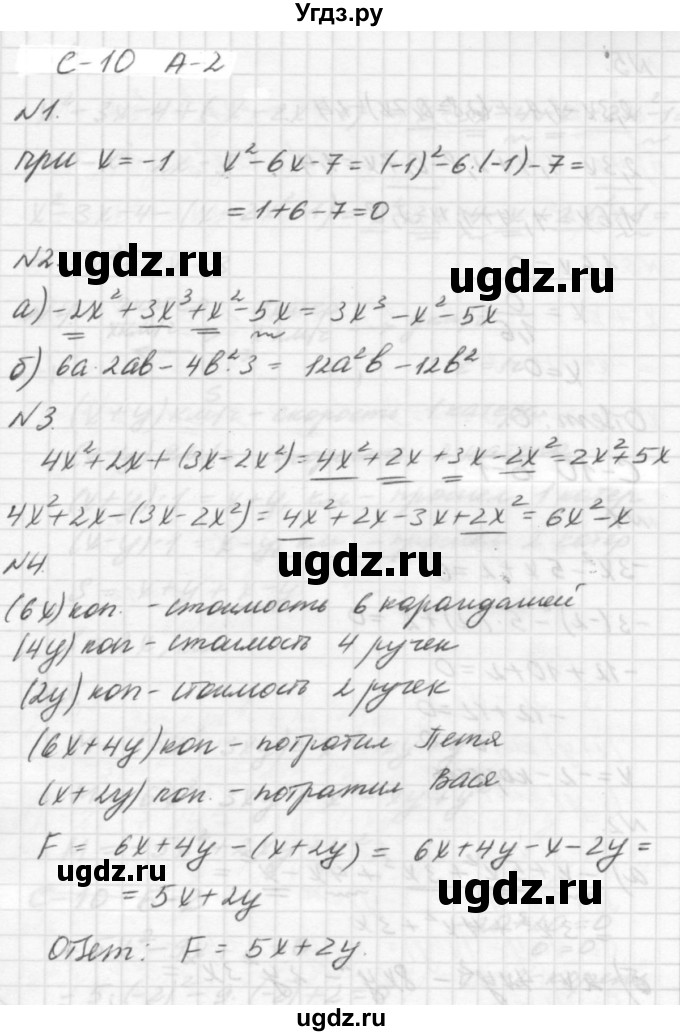 Угдз.ру
С-10 А-2
№1.
при x = -1 x² - 6x - 7 = (-1)² - 6·(-1) - 7 =
= 1 + 6 - 7 = 0
№2.
ugdz.ru ugdz.ru
а) -2x² + 3x³ + x² - 5x = 3x³ - x² - 5x
б) 6a·2ab - 4b²·3 = 12a²b - 12b²
№3.
4x² + 2x + (3x - 2x²) = 4x² + 2x + 3x - 2x² = 2x² + 5x
4x² + 2x - (3x - 2x²) = 4x² + 2x - 3x + 2x² = 6x² - x
№4.
(6x) коп. - стоимость 6 карандашей
(4y) коп - стоимость 4 ручек
(2y) коп - стоимость 2 ручек
(6x + 4y) коп - потратил Петя
(x + 2y) коп. - потратил Вася
F = 6x + 4y - (x + 2y) = 6x + 4y - x - 2y =
ugdz.ru ugdz.ru
= 5x + 2y
Ответ: F = 5x + 2y.
ugdz.ru